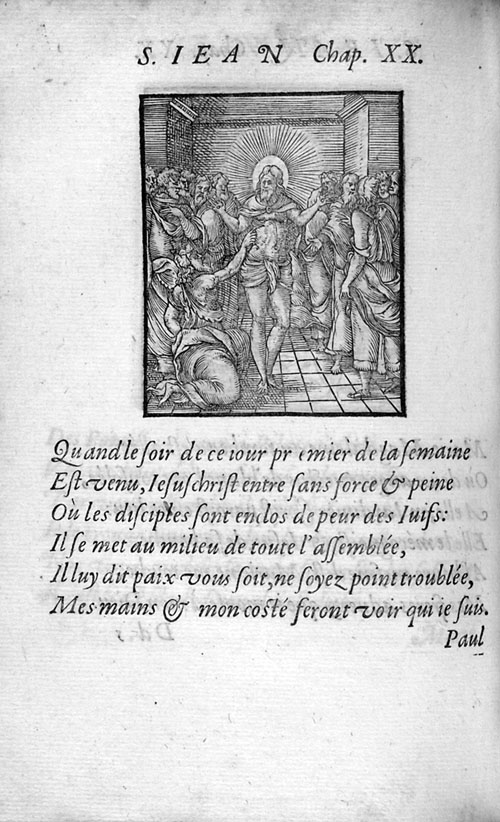 S. IEAN Chap. XX.
Quand le soir de ce iour premier de la semaine
Est venu, Iesuschrist entre sans force & peine
Où les disciples sont enclos de peur des Iuifs:
Il se met au milieu de toute l'assemblée,
Il luy dit paix vous soit, ne soyez point troublée,
Mes mains & mon costé feront voir qui ie suis.
Paul